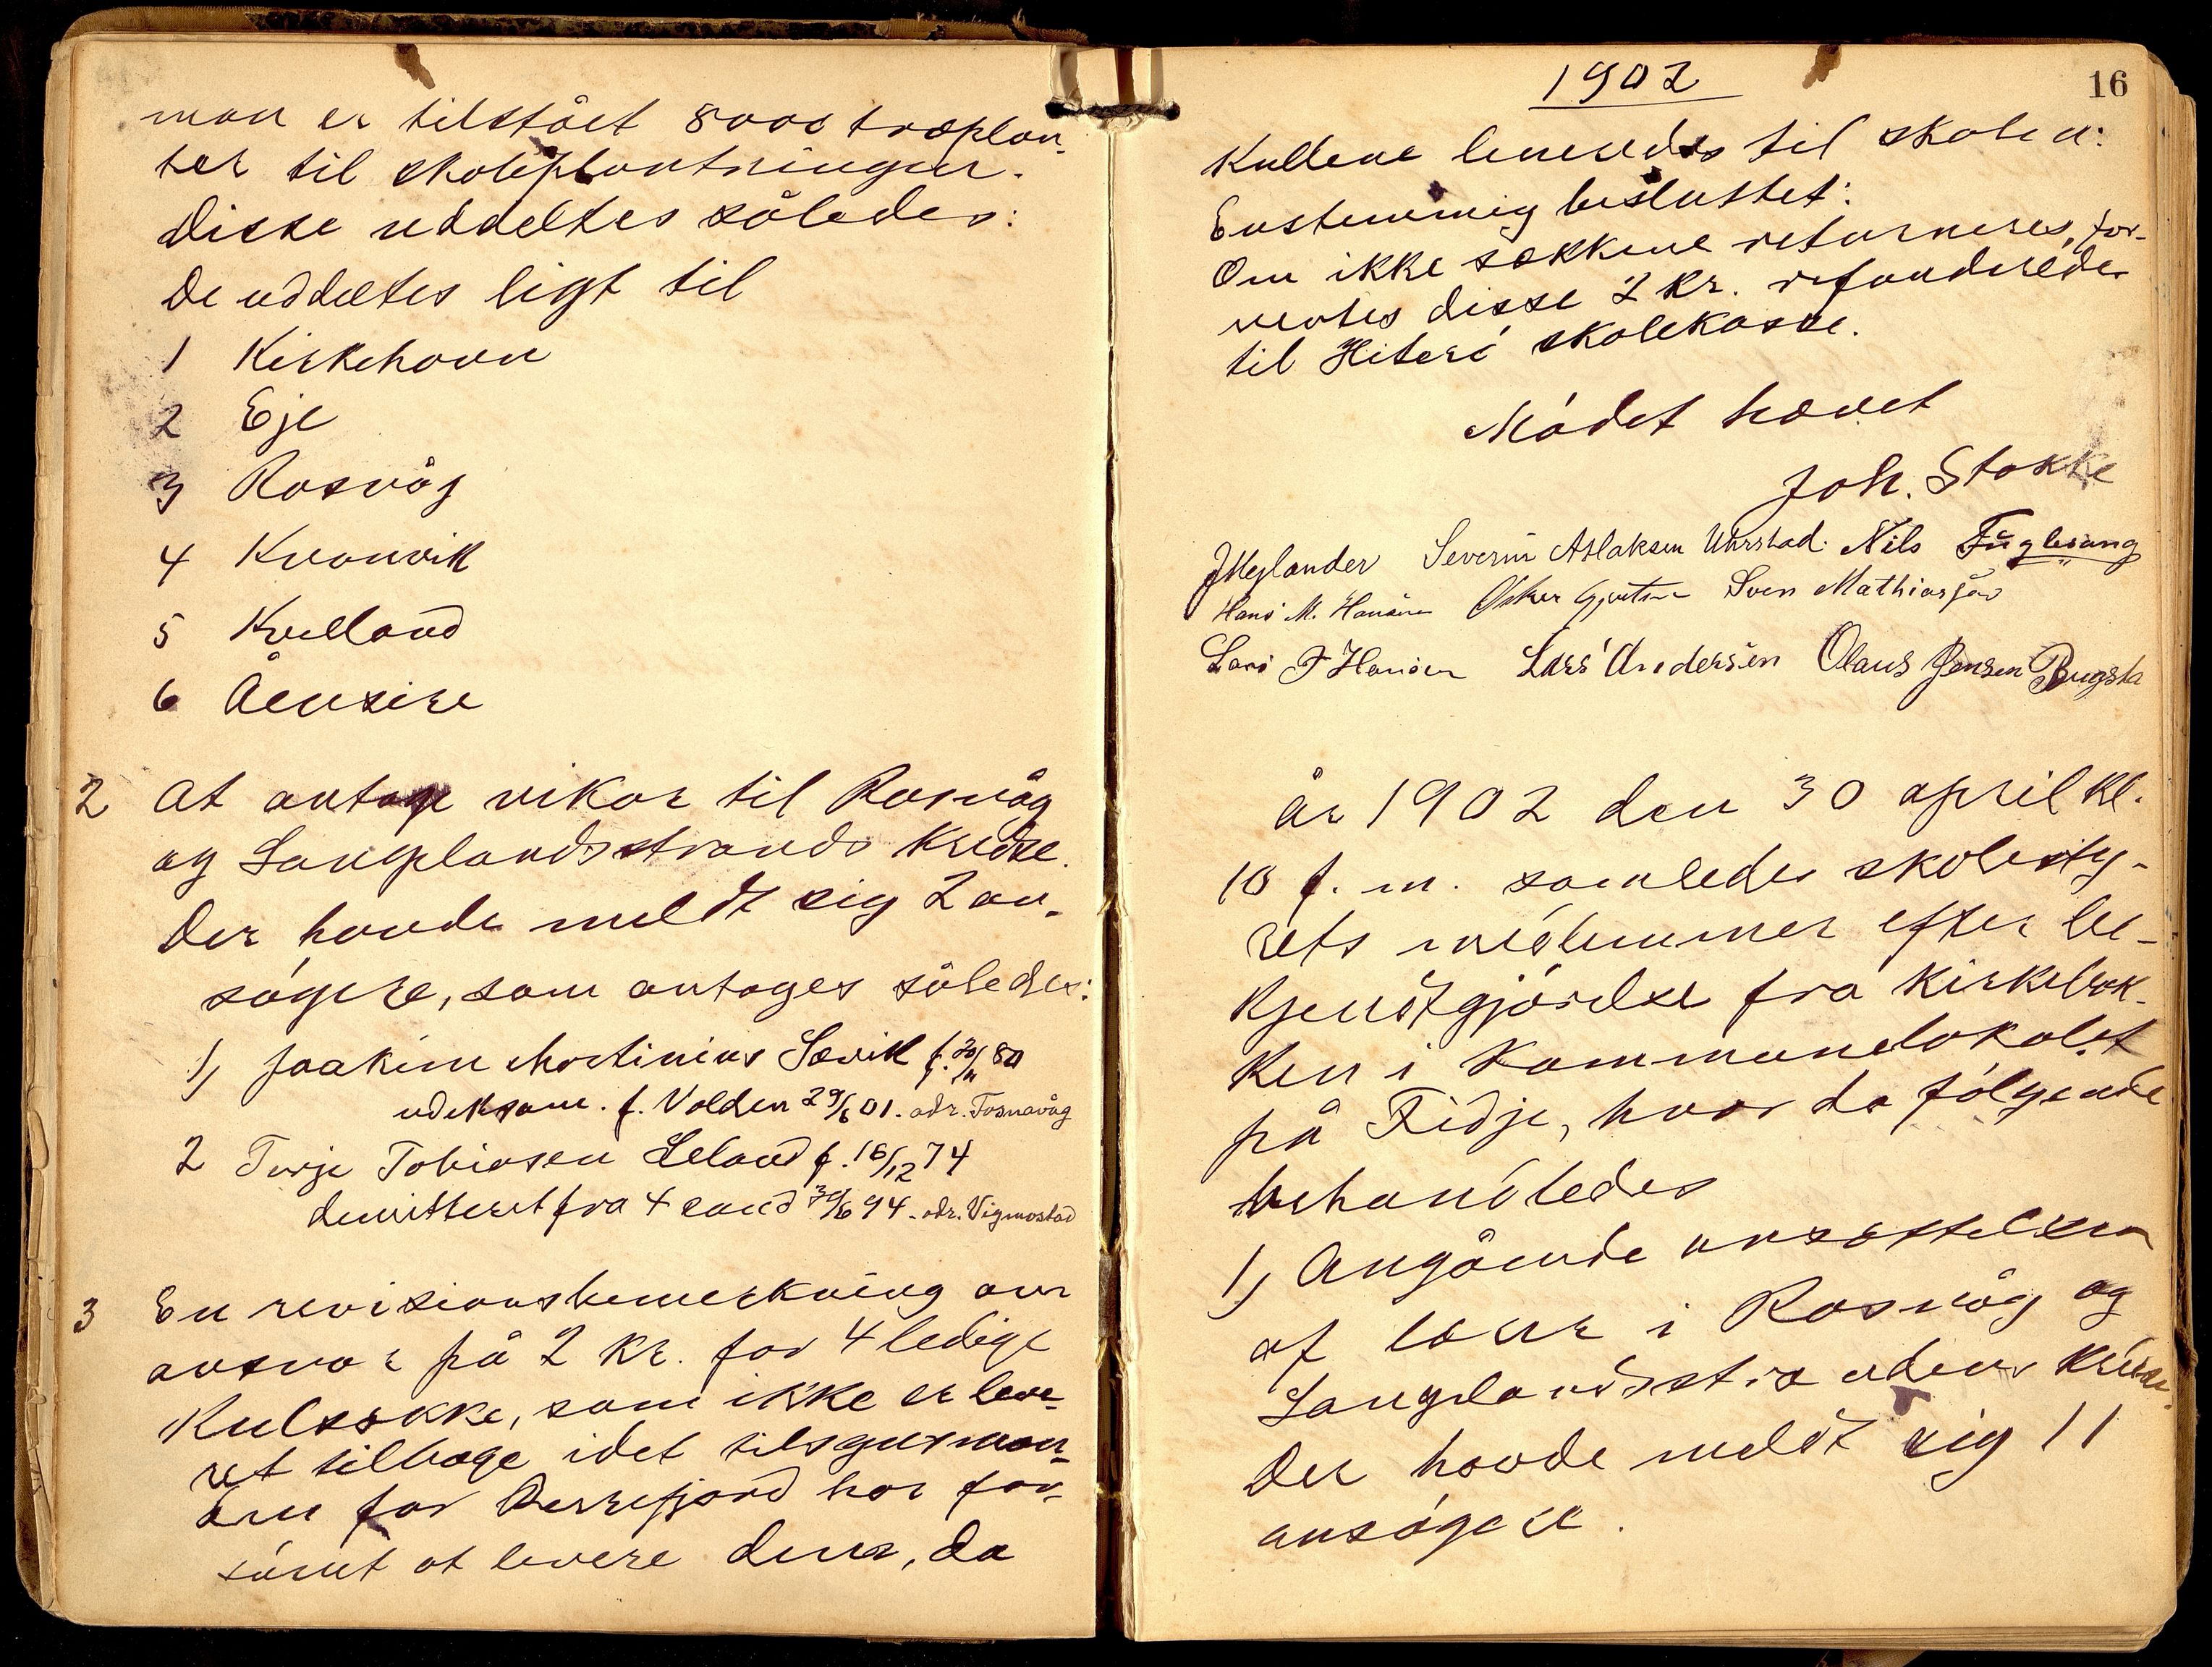 man er tilstået 8000 træplan-
ter til skoleplantninger.
Disse uddeltes således:
De uddeltes ligt til
1 Kirkehavn
2 Eje
3 Rosvåg
4 Kvanvik
5 Kvelland
6 Åensire
2 At antage vikar til Rosvåg
og Langelandsstrands kredse.
Der havde meldt sig 2 an-
søgere, som antages således:
1) Joakim Martinius Sævik f. 20/11 80
udeksam. f. Volden 29/6 01. adr. Fosnavåg
2 Terje Tobiasen Leland f. 16/12 74
demitteret fra 4 sand 30/6 94. adr. Vigmostad
3 En revisionsbemerkning om
ansvar på 2 kr. for 4 ledige
Kulsække, som ikke er leve-
ret tilbage idet tilsynsman-
den for Berrefjord har for-
sømt at levere dem, da
1902
16
Kullene leveredes til skolen:
Enstemmig besluttet:
Om ikke sækkene returneres, for-
ventes disse 2 kr. refunderede
til Hiterø skolekasse.
Mødet hævet
Joh. Stakke
JMeglander Severin Aslaksen Urstad Nils Fuglesang
Hans M. Hansen Osker Gjertsen Sven Mathiassen
Lars F Hansen Lars Andersen Olaus Jensen Bugsta
år 1902 den 30 april kl.
10 f. m. samledes skolesty-
rets medlemmer efter be-
kjendtgjørelse fra kirkebak-
ken i Kommunelokalet
på Fidje, hvor da følgende
behandledes
1) Angående ansættelsen
af lærer i Rosvåg og
Langelandsstrandens kreds.
Der havde meldt sig 11
ansøgere.